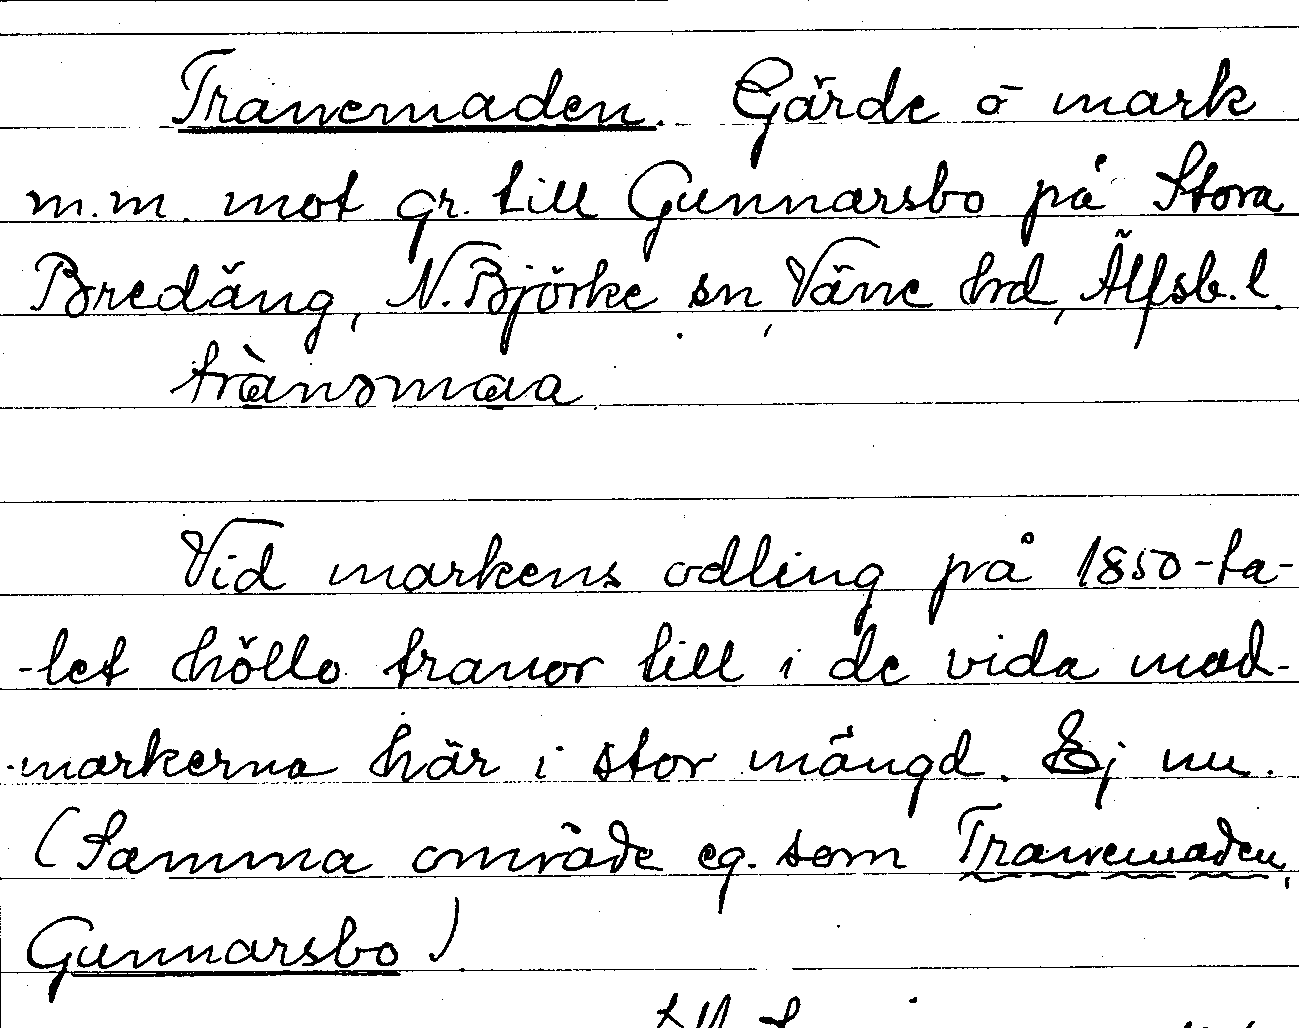 Tranemaden. Gärde o mark
m.m. mot gr. till Gunnarsbo på Stora
Bredäng, N. Björke sn, Väne hd, Älfsb. l.
trànəmaa
Vid markens odling på 1850-ta-
-let höllo tranor till i de vida mad-
-markerna här i stor mängd. Ej nu.
(Samma område eg. som Tranemaden,
Gunnarsbo)